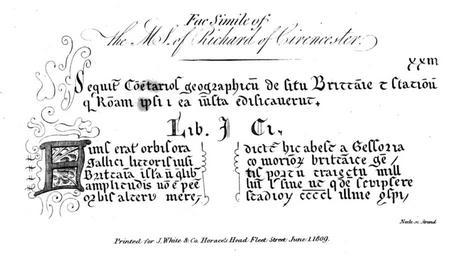 Fac Simile of
the M.S. of Richard of Cirencester.
xxm
Sequit Cōetarioꝫ geographicū de situ Brittāie t statioū
q Rōam ipsi i ea iusta edificauerut.
Lib. J Ci.
orbis ora
gallici littoris nisi
Brittāia isla
amplitudis
orbis alteru mere,
dicte hic abest a Gessoria
co morioꝝ britāice ge
tis portu traiectu mill
scripsere
stadioꝝ ccccl illme
Neele sc. Strand
Printed for J. White & Co. Horace's Head Fleet Street June 1. 1809.